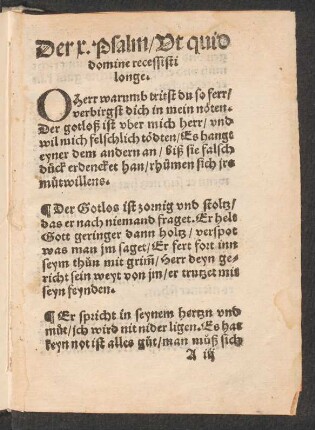 Der x. Psalm/Vt quid
domine recessisti
longe.
O Herr warumb tritst du so ferr/
verbirgst dich in mein nöten.
Der gotloß ist vber mich herr/ vnd
wil mich felschlich tödten/ Es hangt
eyner dem andern an/ biß sie falsch
dück erdencket han/ rhümen sich jrs
mütwillens.
¶ Der Gotlos ist zornig vnd stoltz/
das er nach niemand fraget. Er helt
Gott geringer dann holtz/ verspot
was man jm saget/ Er fert fort inn
seym thün mit grim̄/ Herr deyn ge-
richt sein weyt von jm/ er trutzet mit
seyn feynden.
¶ Er spricht in seynem hertzn vnd
müt/ ich wird nit nider ligen. Es hat
keyn not ist alles güt/ man müß sich
A iij